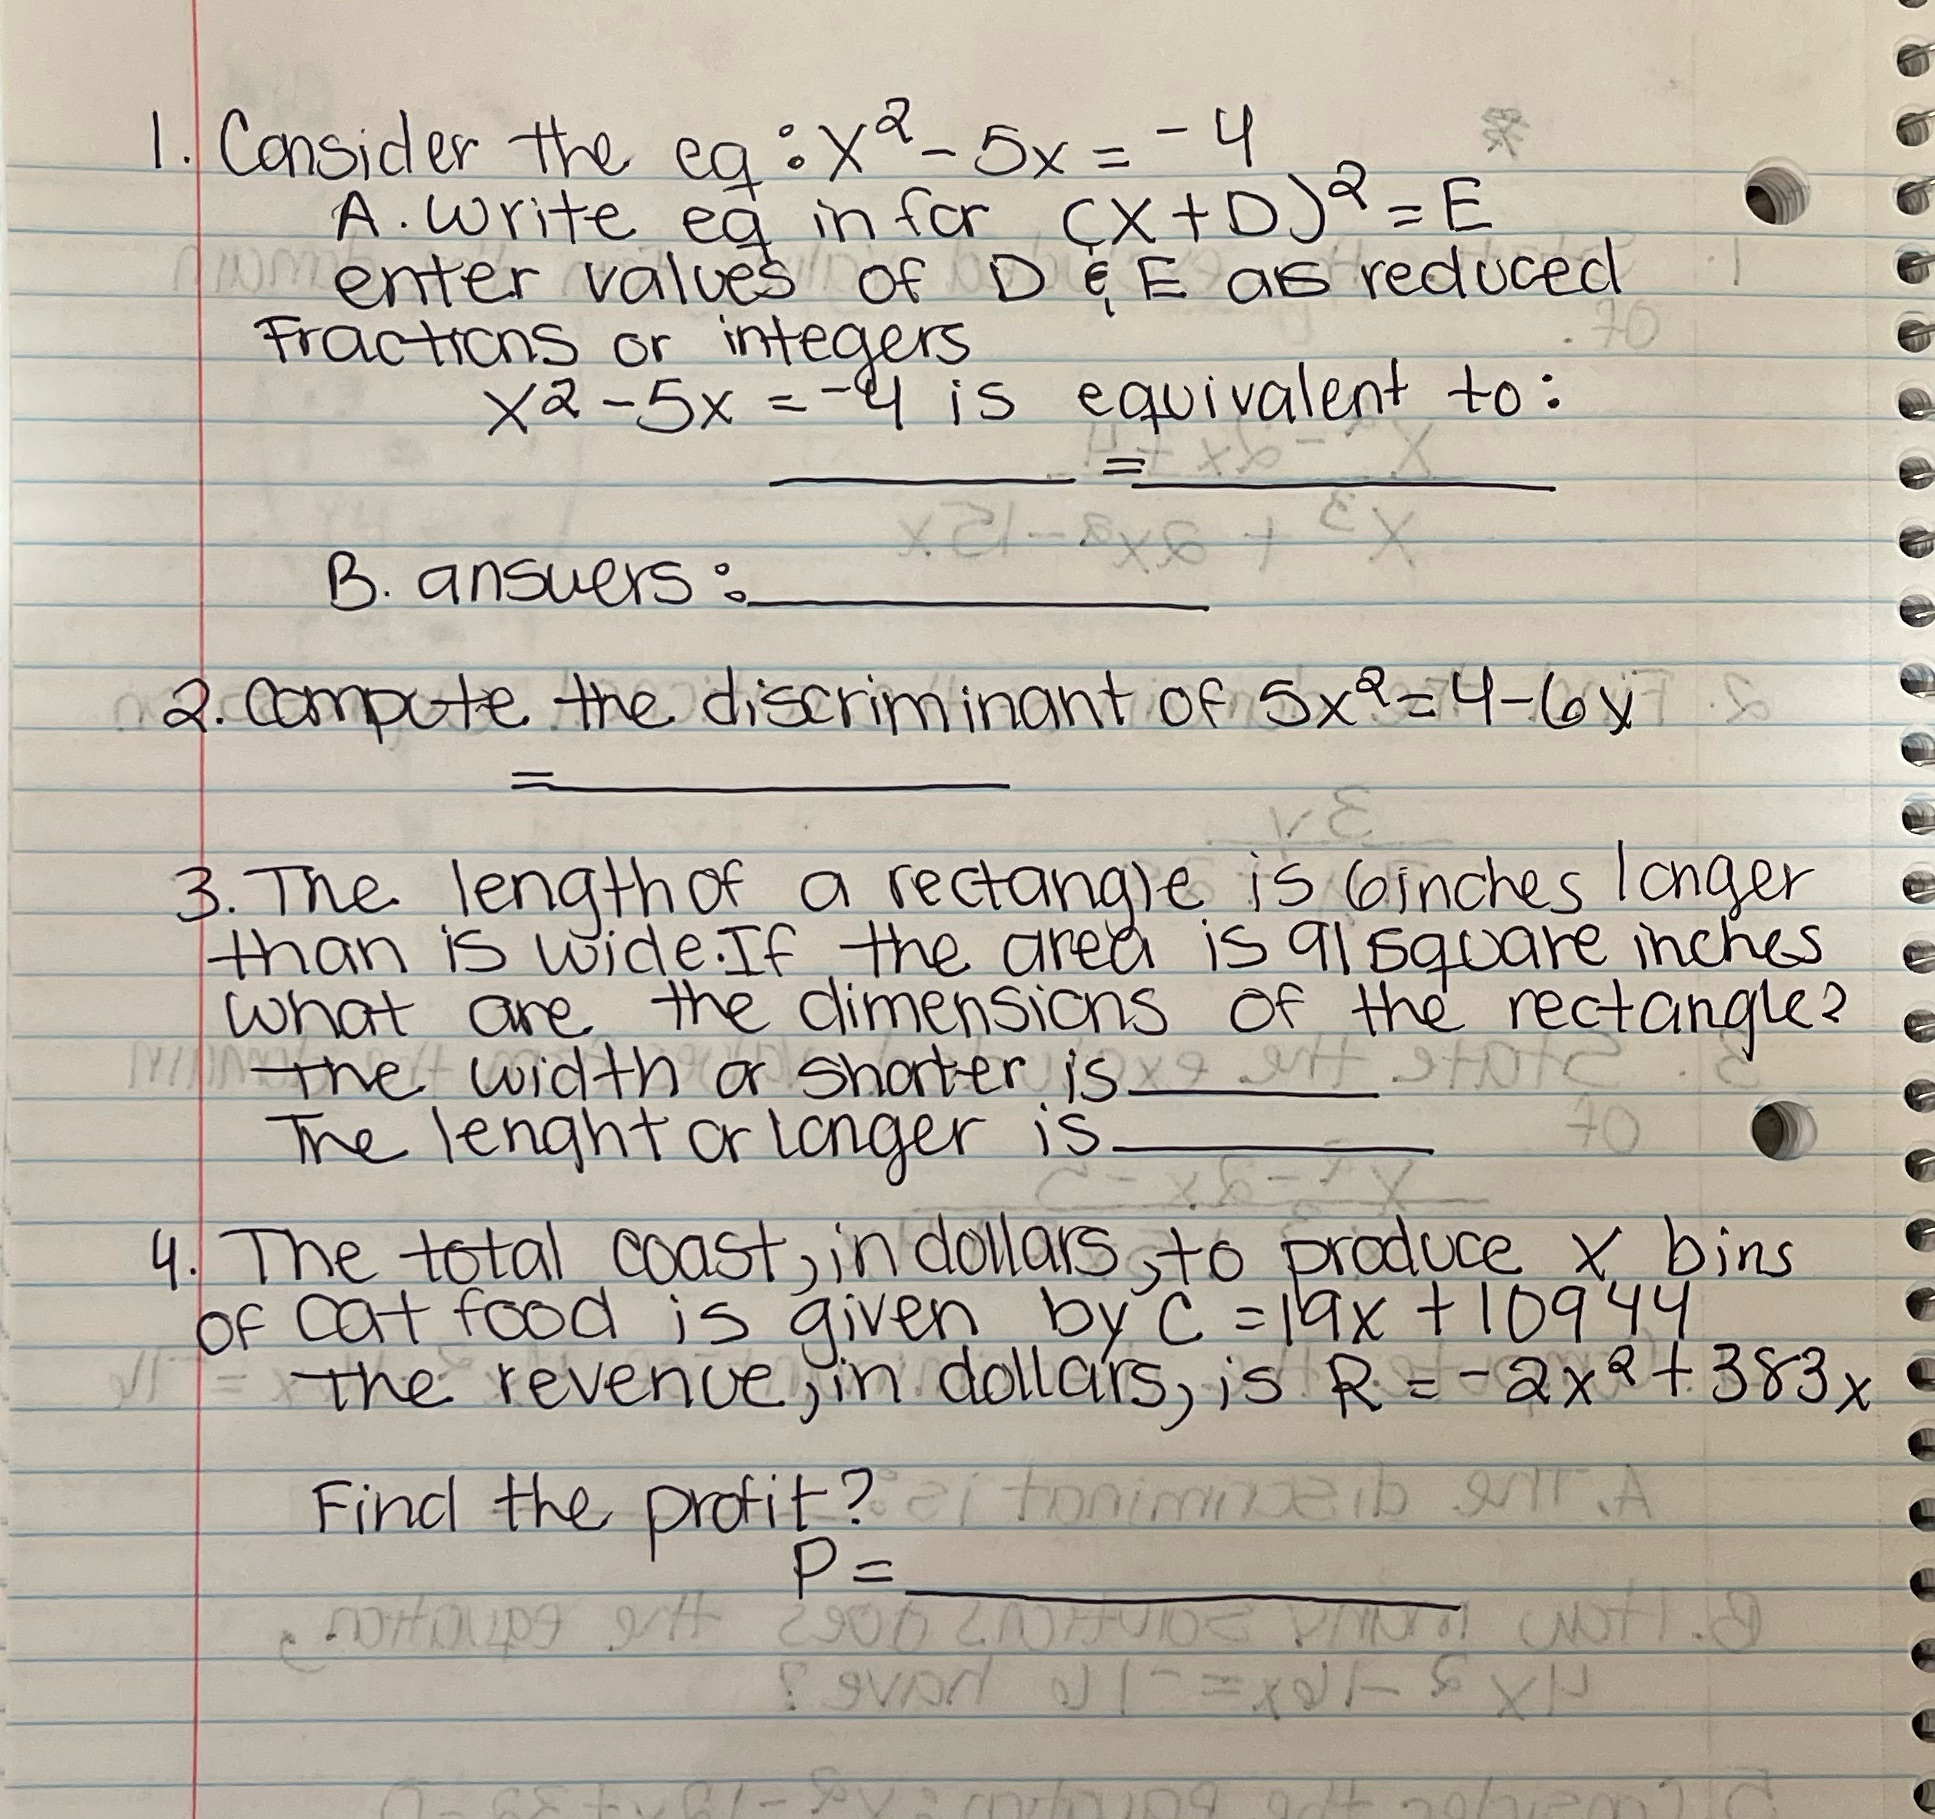 1. Consider the eq: x² - 5x = -4
A. Write eq in for (x+D)² = E
enter values of D & E as reduced
Fractions or integers
x² - 5x = -4 is equivalent to:
______ = ________
B. answers: ________
2. compute the discriminant of 5x² = 4 - 6x
= ________
3. The length of a rectangle is 6 inches longer
than is wide. If the area is 91 square inches
what are the dimensions of the rectangle?
the width or shorter is ______
The lenght or longer is ______
4. The total coast, in dollars, to produce x bins
of cat food is given by C = 19x + 10944
the revenue, in dollars, is R = -2x² + 383x
Find the profit?
P = ________